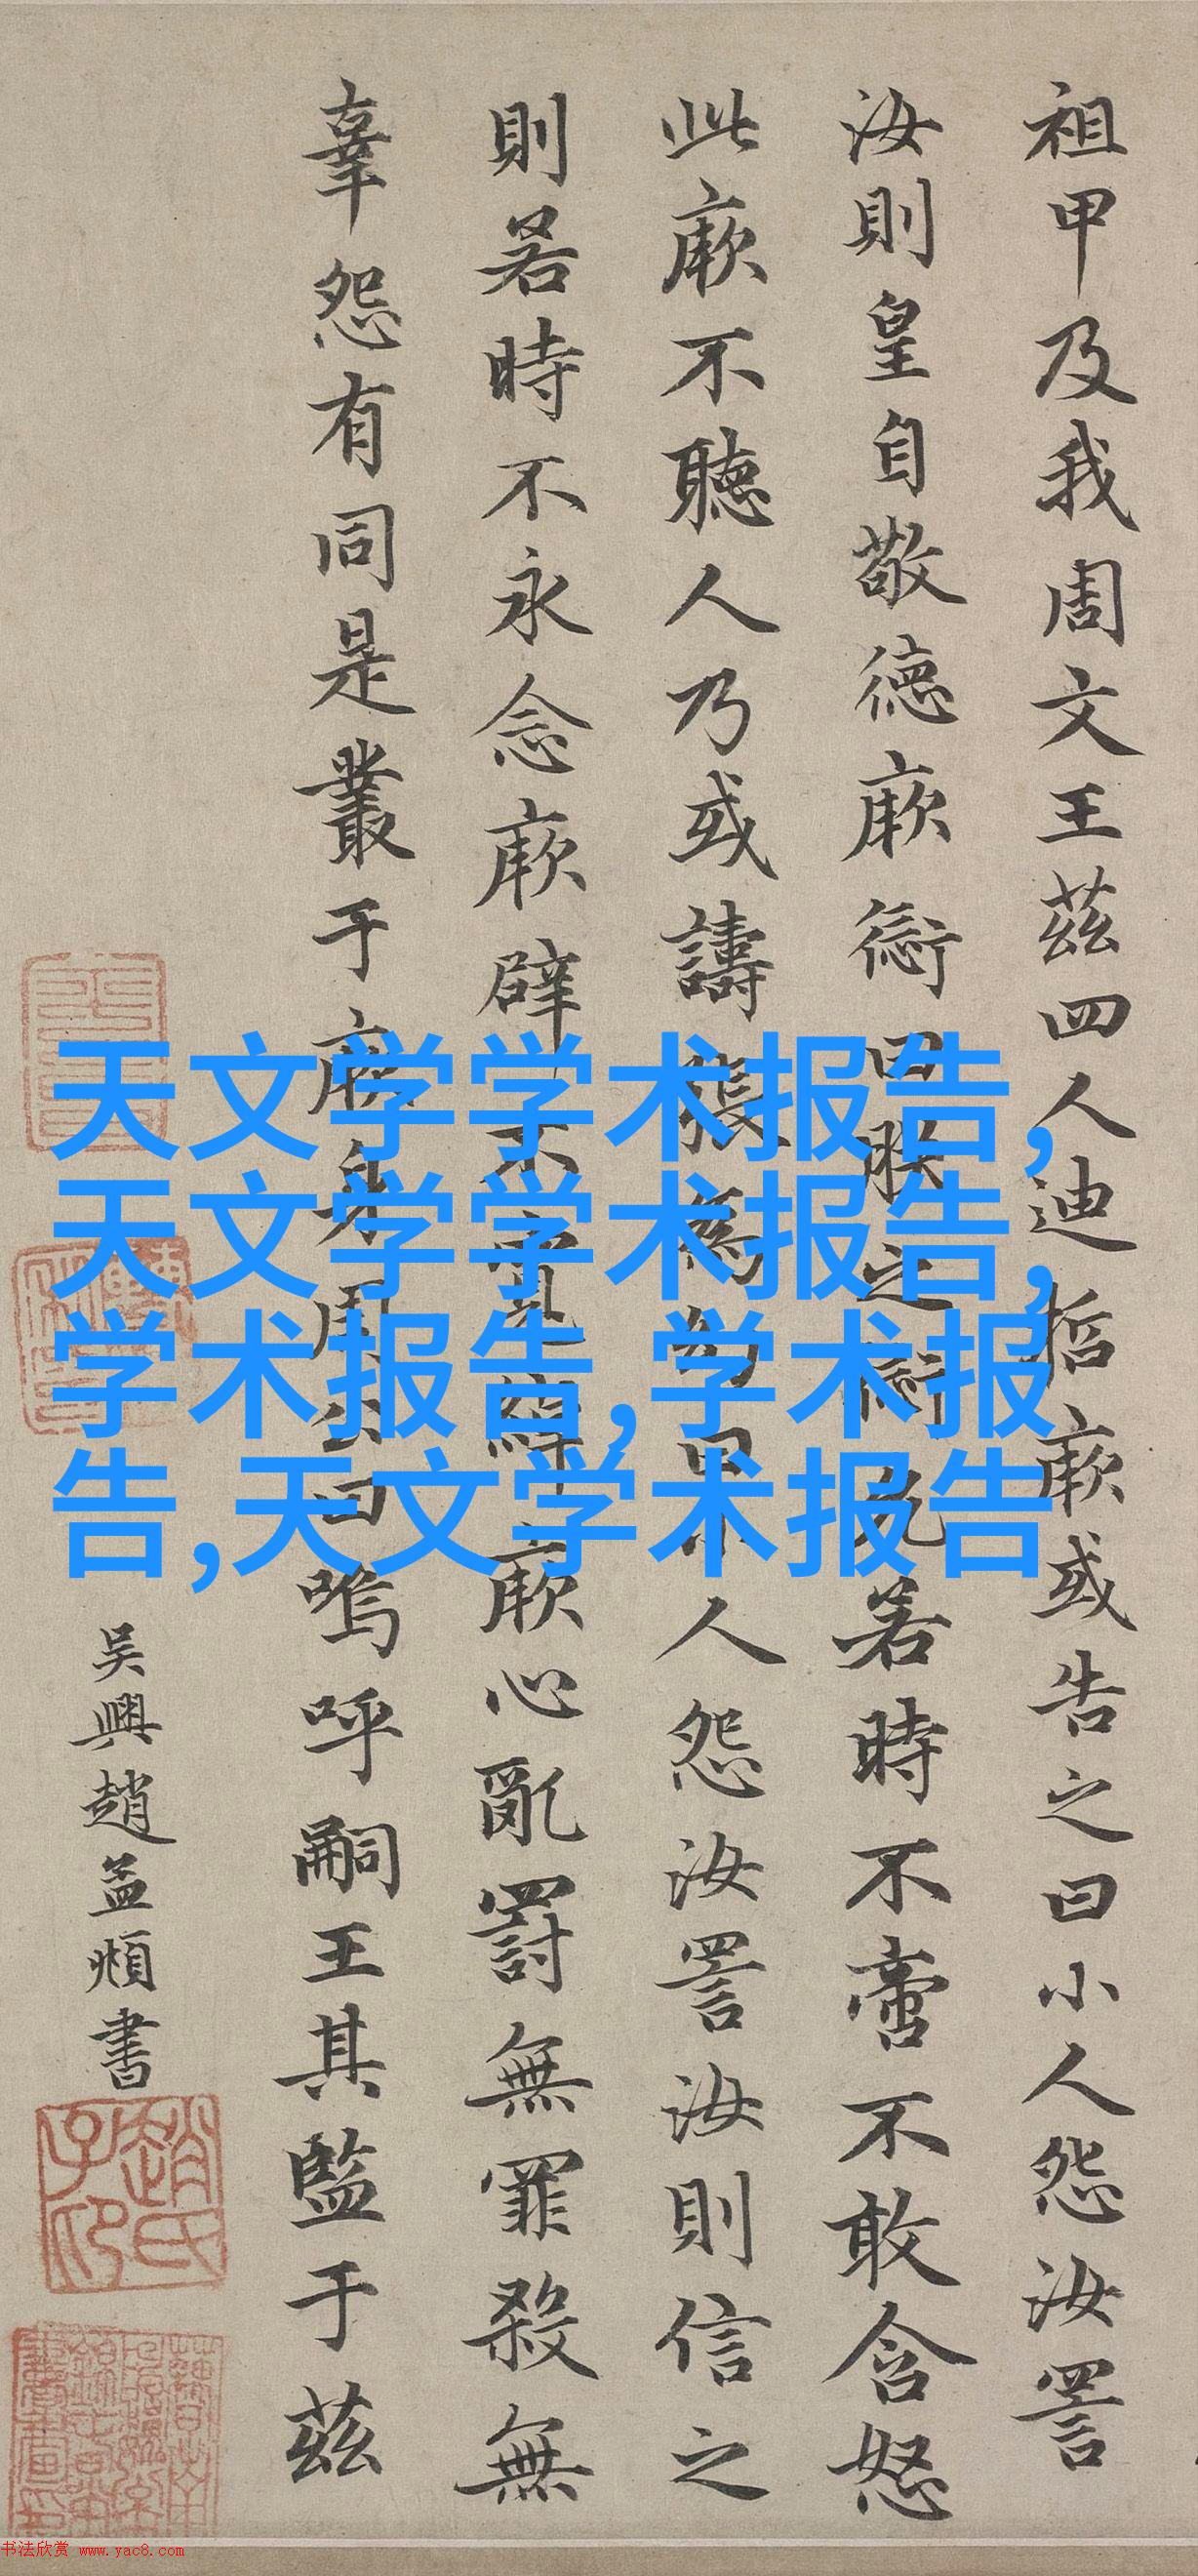 祖甲及我周文王茲四人迪哲厥或告之曰小人怨汝詈
汝則皇自敬德厥愆曰朕之愆允若時不啻不敢含怒
此厥不聽人乃或譸張為幻曰小人怨汝詈汝則信之
則若時不永念厥辟不寬綽厥心亂罰無罪殺無
辜怨有同是叢于厥身周公曰嗚呼嗣王其監于茲
吴興趙孟頫書
趙氏子昂
天文学学术报告,
天文学学术报告,
学术报告,学术报
告,天文学术报告
书法欣赏 www.yac8.com